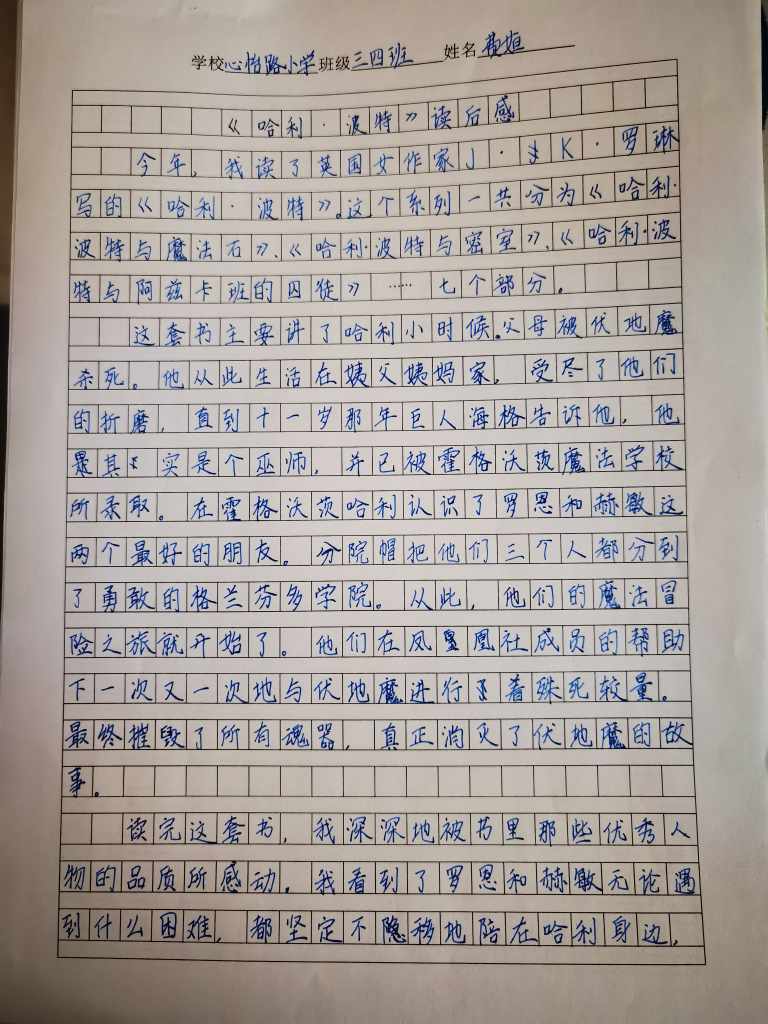 学校心怡路小学班级三四班 姓名
《哈利·波特》读后感
今年，我读了英国女作家J·K·罗琳
写的《哈利·波特》。这个系列一共分为《哈利·
波特与魔法石》、《哈利·波特与密室》、《哈利·波
特与阿兹卡班的囚徒》……七个部分。
这套书主要讲了哈利小时候。父母被伏地魔
杀死。他从此生活在姨父姨妈家，受尽了他们
的折磨，直到十一岁那年巨人海格告诉他，他
是其实是个巫师，并已被霍格沃茨魔法学校
所录取。在霍格沃茨哈利认识了罗恩和赫敏这
两个最好的朋友。分院帽把他们三个人都分到
了勇敢的格兰芬多学院。从此，他们的魔法冒
险之旅就开始了。他们在凤凰社成员的帮助
下一次又一次地与伏地魔进行着殊死较量。
最终摧毁了所有魂器，真正消灭了伏地魔的故
事。
读完这套书，我深深地被书里那些优秀人
物的品质所感动。我看到了罗恩和赫敏无论遇
到什么困难，都坚定不隐移地陪在哈利身边，